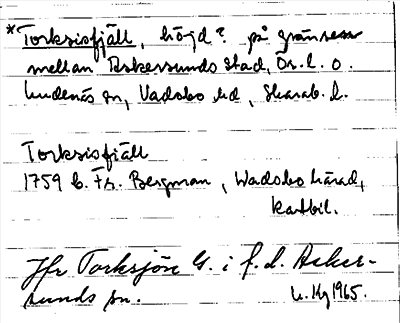 *Torksisfjäll, höjd? på gränsen
mellan Askersunds stad, Ör. l. o.
Undenäs sn, Vadsbo hd, Skarab. l.
Torksisfjäll
1759 C. Fr. Bergman, Wadsbo härad,
kartbil.
Jfr Torksjön G. i f. d. Asker-
sunds sn.
1965.